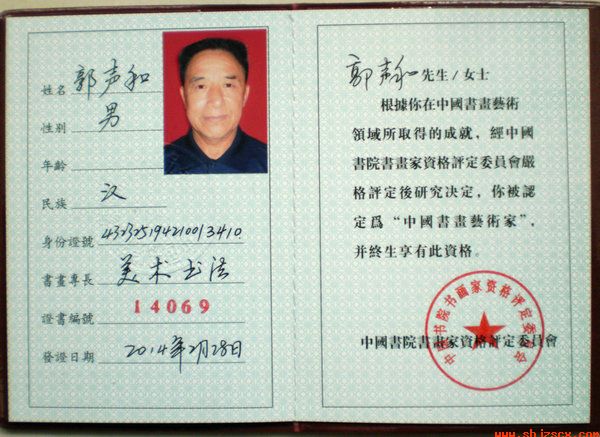 姓名 郭声和
性別 男
年齡
民族 汉
身份證號 432325194210013410
書畫專長 美术书法
證書編號 14069
發證日期 2014年2月28日
郭声和先生/女士
根據你在中國書畫藝術
領域所取得的成就，經中國
書院書畫家資格評定委員會嚴
格評定後研究決定，你被認
定爲“中國書畫藝術家”，
并終生享有此資格。
中國書院書畫家資格評定委員會
中国书院书画家资格评定委员会
www.shjzscx.com